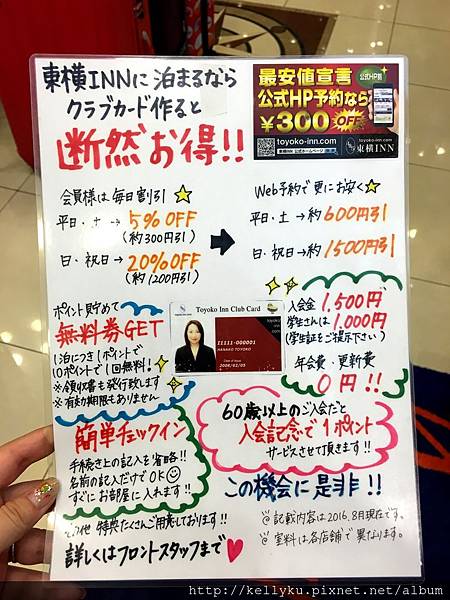 東横INNに泊まるなら
クラブカード作ると
断然お得!!
最安値宣言
公式HP割
公式HP予約なら
¥300 OFF
toyoko-inn.com
東横INN 公式ホームページ
東横INN
会員様は毎日割引☆
平日・土→5%OFF
(約300円引)
日・祝日→20%OFF
(約1200円引)
Web予約で更にお安く☆
平日・土→約600円引
日・祝日→約1500円引
ポイント貯めて
無料券GET
1泊につき1ポイントで
10ポイントで1泊無料!
※領収書も発行致します
※有効期限もありません
Toyoko Inn Club Card
11111-000001
HANAKO TOYOKO
2006/02/05
toyoko-inn.com
入会金 1,500円
学生さんは1,000円
(学生証をご提示下さい)
年会費・更新費
0円!!
簡単チェックイン
手続き上の記入を省略!!
名前の記入だけでOK
すぐにお部屋に入れます!!
60歳以上のご入会だと
入会記念で1ポイント
サービスさせて頂きます!!
この機会に是非!!
その他 特典たくさんご用意しております!!
詳しくはフロントスタッフまで♥
@記載内容は2016.8月現在です。
@室料は各店舗で異なります。
http://kellyku.pixnet.net/album